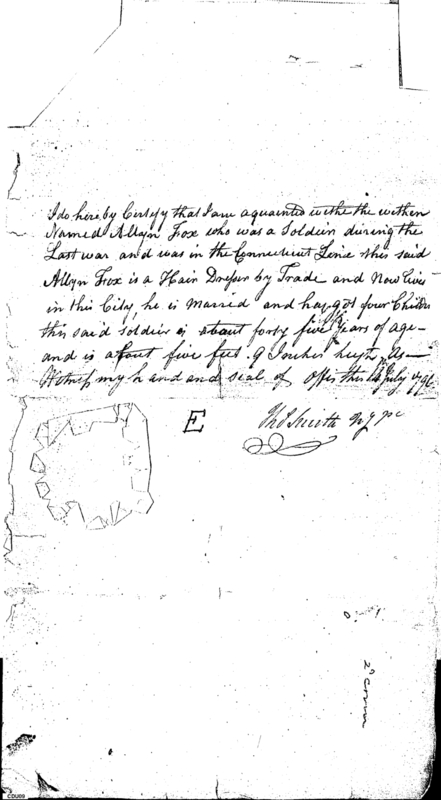 I do here by Certefy that I am aquainted withe the within
Named Allyn Fox who was a Soldier during the
Last war and was in the Connecticut Line this said
Allyn Fox is a Hair Dresser by Trade and Now Lives
in this City, he is Married and has got four Children
this said Soldier is about forty five years of age
and is about five feet 9 Inches high as
Witness my hand and seal of Offis this July 1796
E
Thos Smith
2d Comm
CDU09